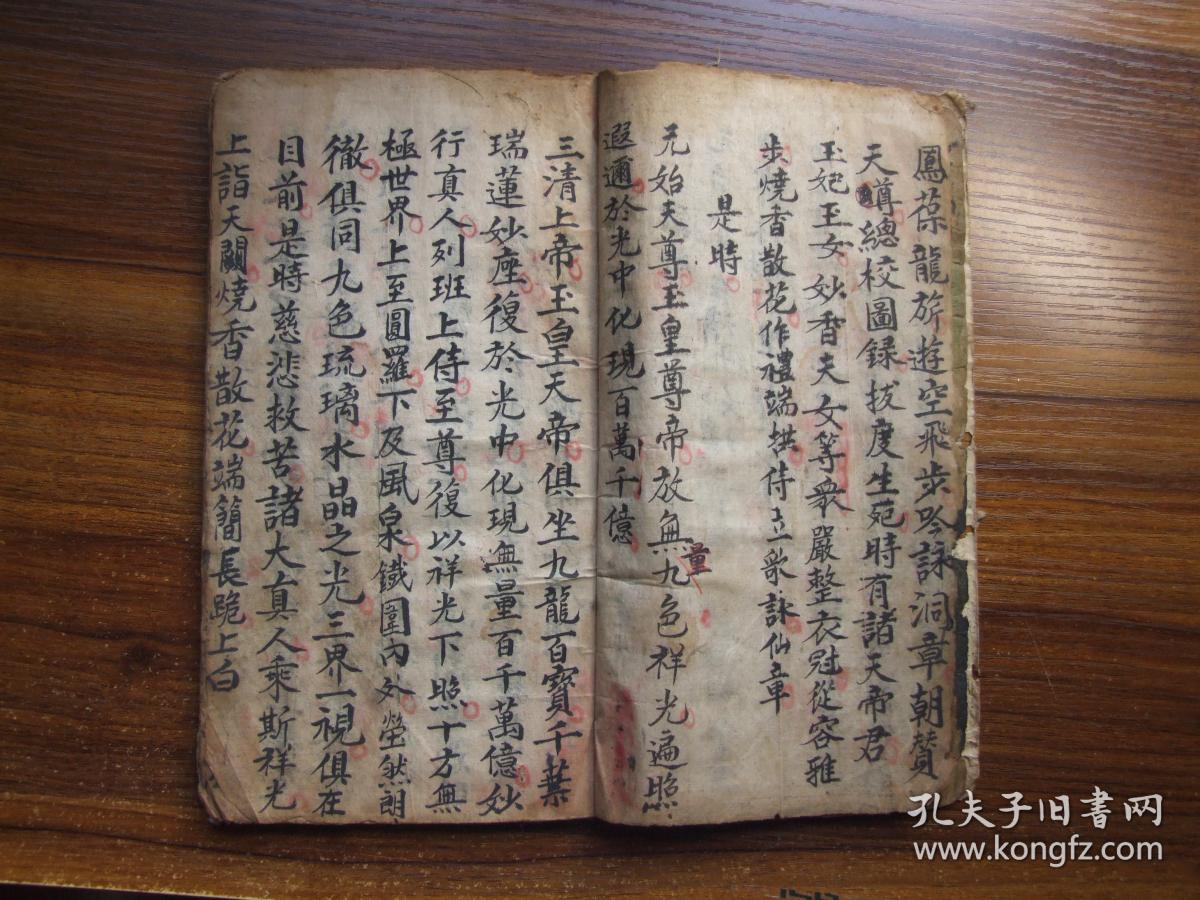 鳳葆龍旂遊空飛步吟詠洞章朝贊
天尊總校圖録拔度生死時有諸天帝君
玉妃玉女妙香夫女等衆嚴整衣冠從容雅
步燒香散花作禮端拱侍立歌詠仙章
是時
元始天尊玉皇尊帝放無量九色祥光遍照
遐邇於光中化現百萬千億
三清上帝玉皇天帝俱坐九龍百寳千葉
瑞蓮妙座復於光中化現無量百千萬億妙
行真人列班上侍至尊復以祥光下照十方無
極世界上至圓羅下及風泉鐵圍內外瑩然朗
徹俱同九色琉璃水晶之光三界一視俱在
目前是時慈悲救苦諸大真人乘斯祥光
上詣天闕燒香散花端簡長跪上白
孔夫子旧书网
www.kongfz.com